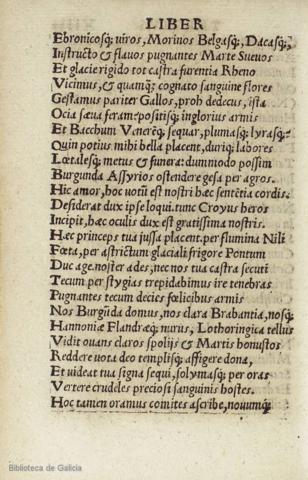 LIBER
Ebronicosq; uiros, Morinos Belgasq;, Dacasq;,
Instructo & flauos pugnantes Marte Sueuos
Et glacie rigido tot castra furentia Rheno
Vicimus, & quamq; cognato sanguine flores
Gestamus pariter Gallos, proh dedecus, ista
Ocia sæua feram? positisq; inglorius armis
Et Bacchum Venerēq; sequar, plumasq; lyrasq;?
Quin potius mihi bella placent, duriq; labores
Lœtalesq; metus & funera: dummodo possim
Burgunda Assyrios ostendere gesa per agros.
Hic amor, hoc uotū est nostri hæc sentētia cordis.
Desiderat dux ipse loqui. tunc Croyus heros
Incipit, hæc oculis dux est gratissima nostris.
Hæc princeps tua iussa placent. per flumina Nili
Fœta, per astrictum glaciali frigore Pontum
Duc age. noster ades, nec nos tua castra secuti
Tecum per stygias trepidabimus ire tenebras
Pugnantes tecum decies fœlicibus armis
Nos Burgūda domus, nos clara Brabantia, nosq;
Hannoniæ Flandræq; nurus, Lothoringica tellus
Vidit ouans claros spolijs & Martis honustos
Reddere uota deo templisq; affigere dona,
Et uideat tua signa sequi, solymasq; per oras
Vertere crudeles preciosi sanguinis hostes.
Hoc tamen oramus comites ascribe, nouumq;
Biblioteca de Galicia